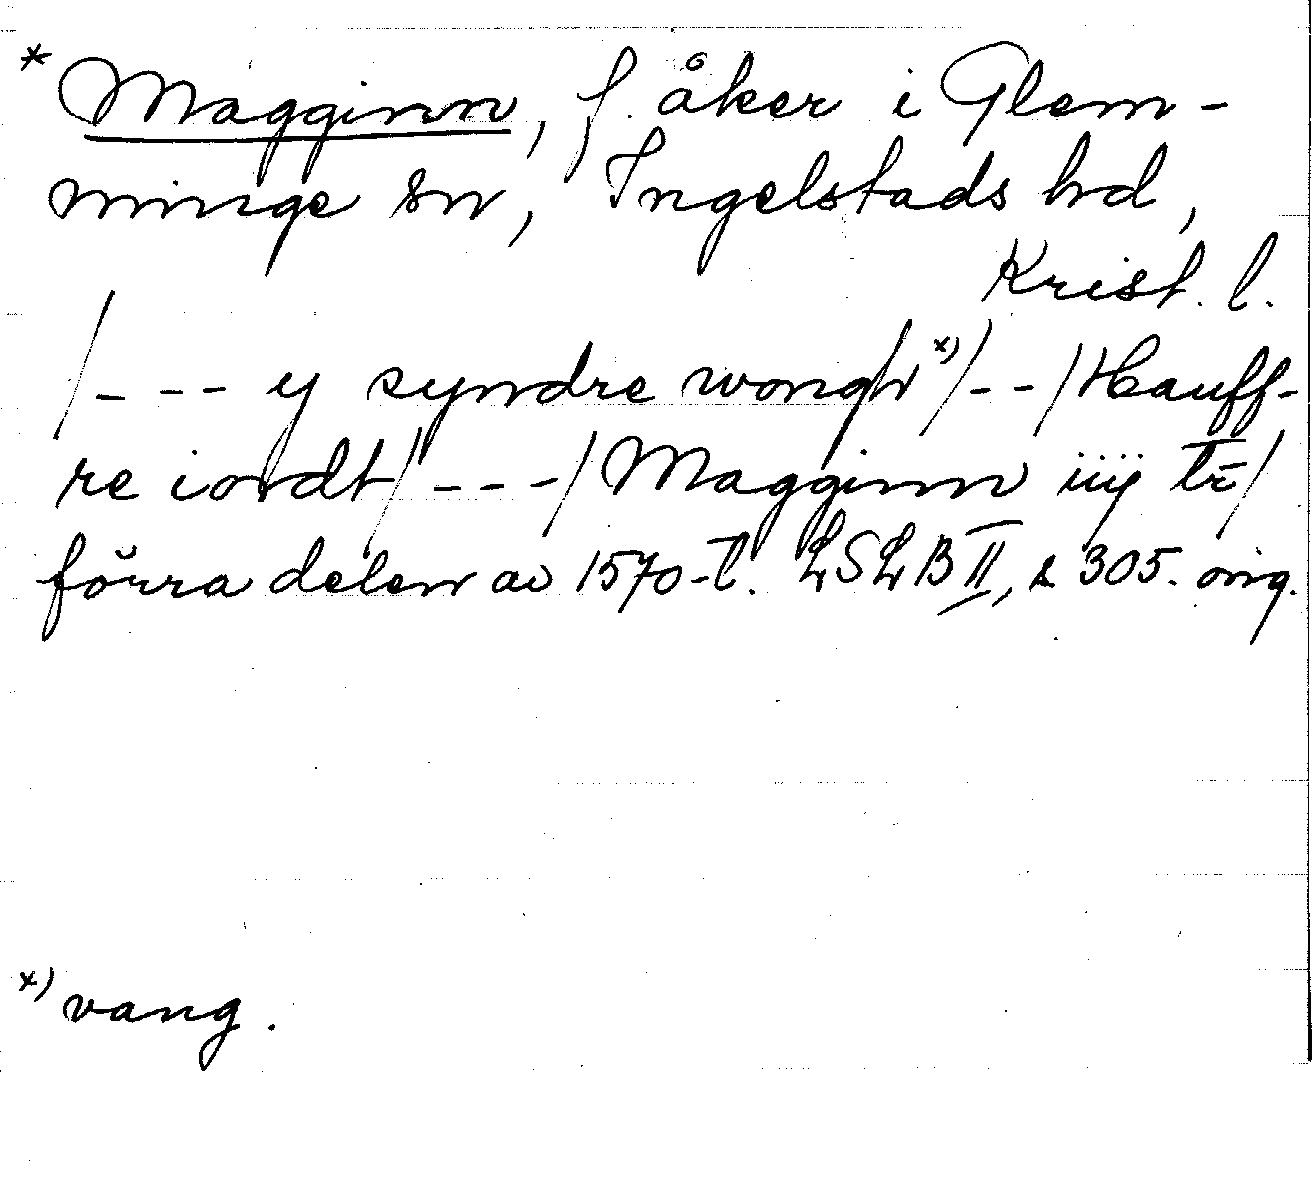 * Magginn, f. åker i Glem-
minge sn, Ingelstads hd,
Krist. l.
/---y syndre wongh x)/--/Hauff-
re iordt/---/Magginn iiij tr̄/
förra delen av 1570-t. LSLB II, s 305. orig.
x) vang.